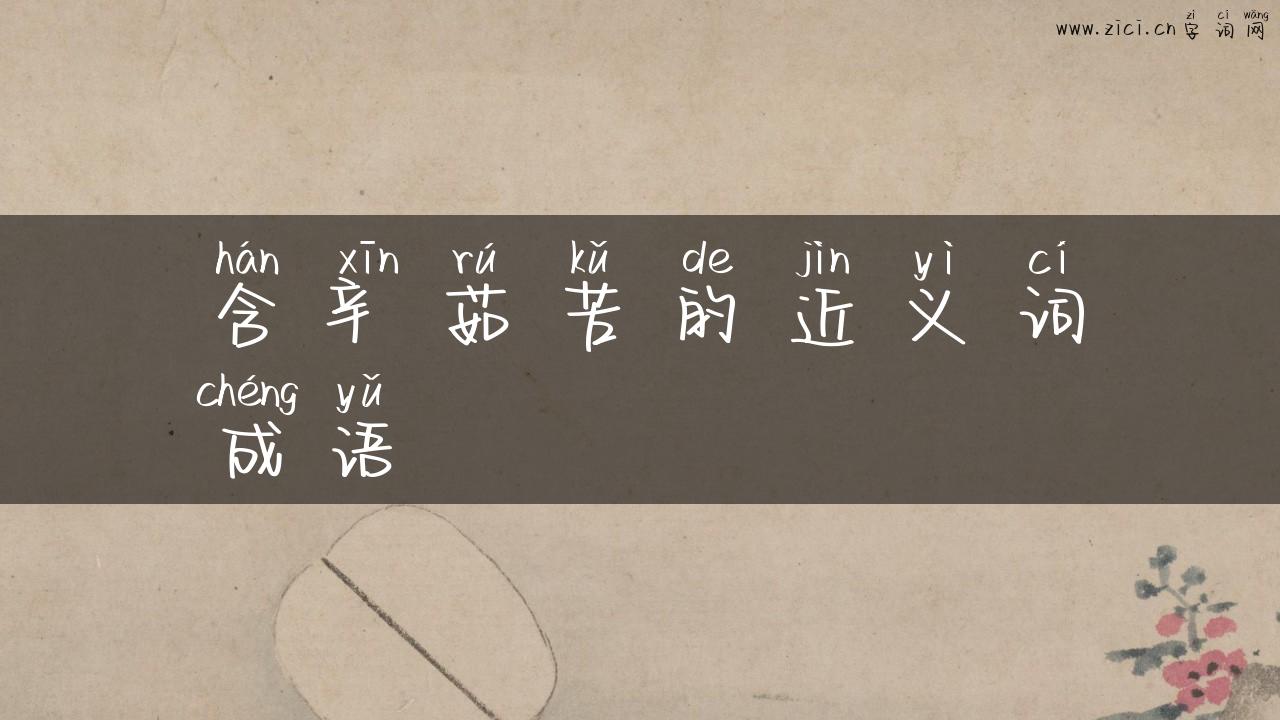 zì cí wǎng
www.zici.cn 字 词 网
hán xīn rú kǔ de jìn yì cí
含 辛 茹 苦 的 近 义 词
chéng yǔ
成 语